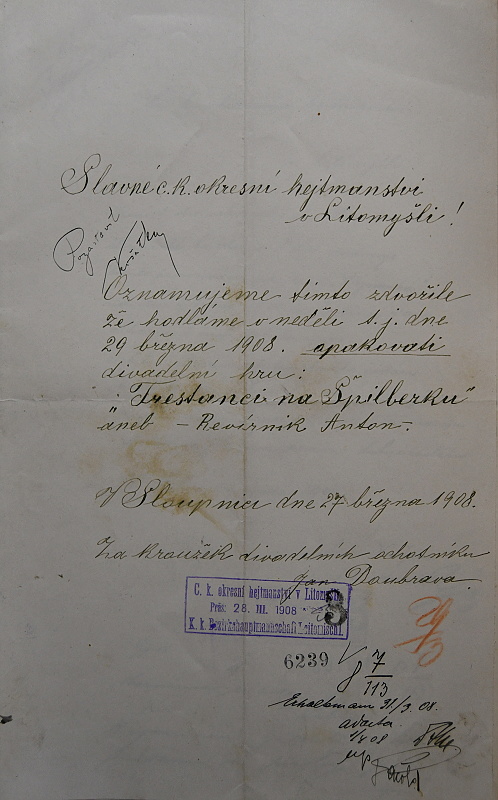 Slavné c. k. okresní hejtmanství
v Litomyšli!
Oznamujeme tímto zdvořile
že hodláme v neděli t. j. dne
29 března 1908. opakovati
divadelní hru:
„Trestanci na Špilberku"
aneb – Revírník Anton –.
V Sloupnici dne 27 března 1908.
Za kroužek divadelních ochotníku
Jan Doubrava.
C. k. okresní hejtmanství v Litomyšli
Präs: 28. III. 1908
K. k. Bezirkshauptmannschaft Leitomischl
5
29/3
6239
7
113
31/3. 08.
ad acta